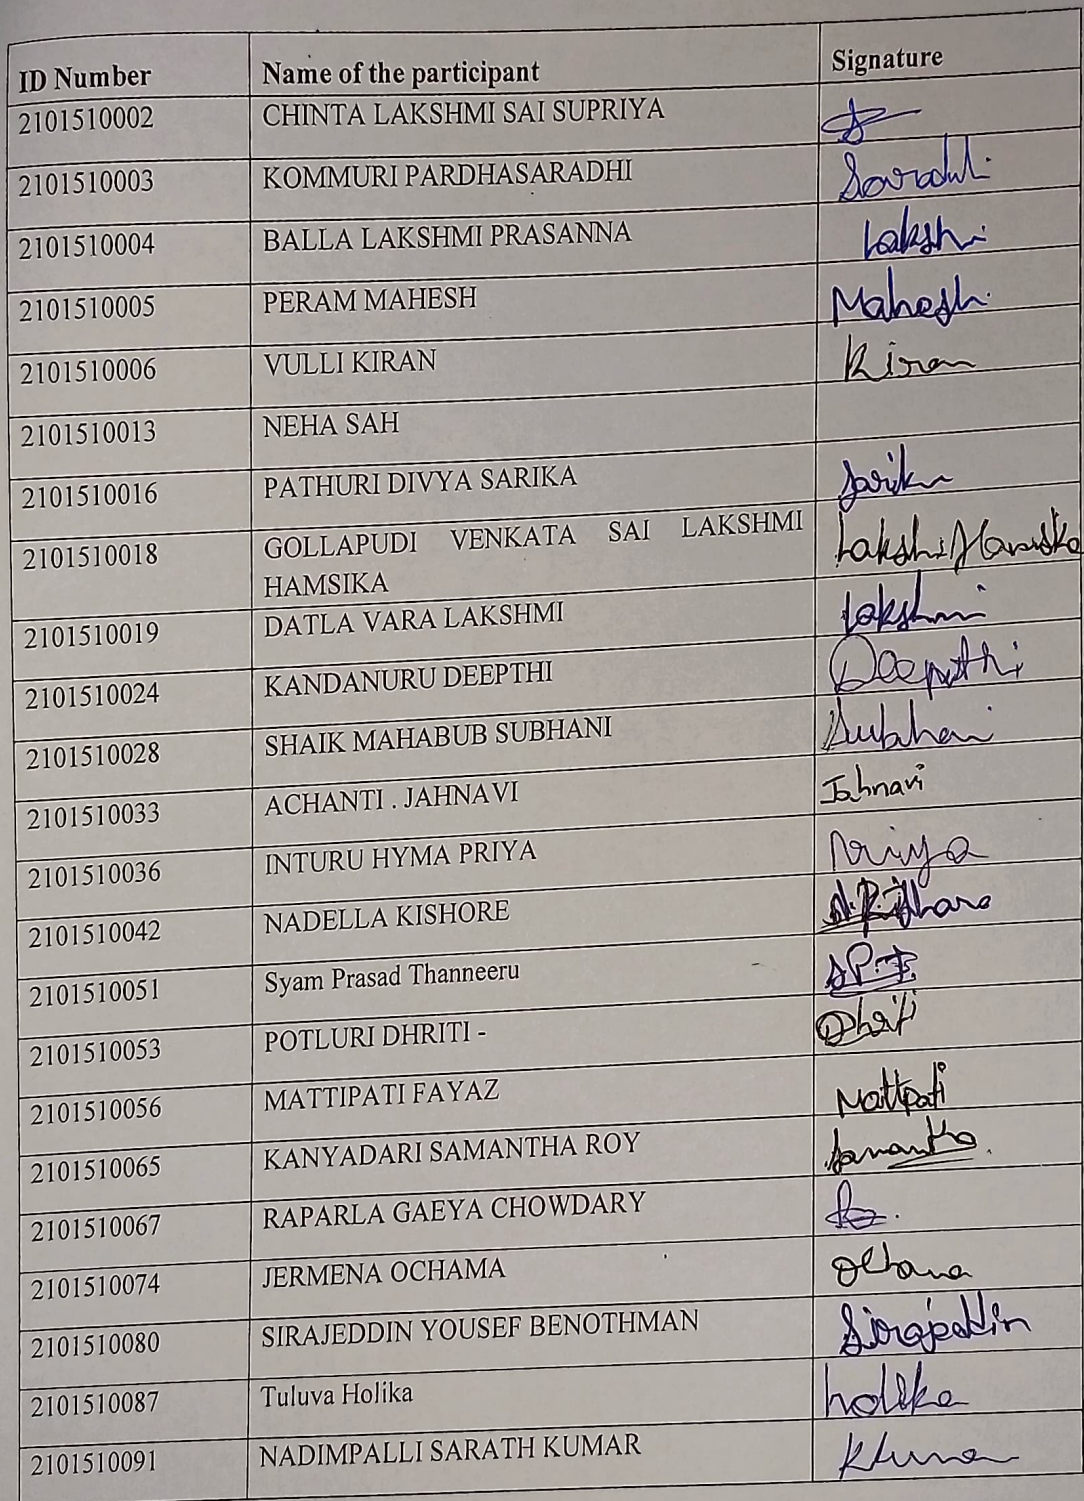 ID Number Name of the participant Signature
2101510002 CHINTA LAKSHMI SAI SUPRIYA
2101510003 KOMMURI PARDHASARADHI
2101510004 BALLA LAKSHMI PRASANNA Lakshi
2101510005 PERAM MAHESH Mahesh
2101510006 VULLI KIRAN Kiran
2101510013 NEHA SAH
2101510016 PATHURI DIVYA SARIKA Sarika
2101510018 GOLLAPUDI VENKATA SAI LAKSHMI
HAMSIKA
2101510019 DATLA VARA LAKSHMI Lakshmi
2101510024 KANDANURU DEEPTHI Deepthi
2101510028 SHAIK MAHABUB SUBHANI Subhani
2101510033 ACHANTI . JAHNAVI Jahnavi
2101510036 INTURU HYMA PRIYA Priya
2101510042 NADELLA KISHORE
2101510051 Syam Prasad Thanneeru
2101510053 POTLURI DHRITI - Dhriti
2101510056 MATTIPATI FAYAZ Mattpati
2101510065 KANYADARI SAMANTHA ROY Samantha
2101510067 RAPARLA GAEYA CHOWDARY
2101510074 JERMENA OCHAMA
2101510080 SIRAJEDDIN YOUSEF BENOTHMAN Sirajeddin
2101510087 Tuluva Holika holika
2101510091 NADIMPALLI SARATH KUMAR